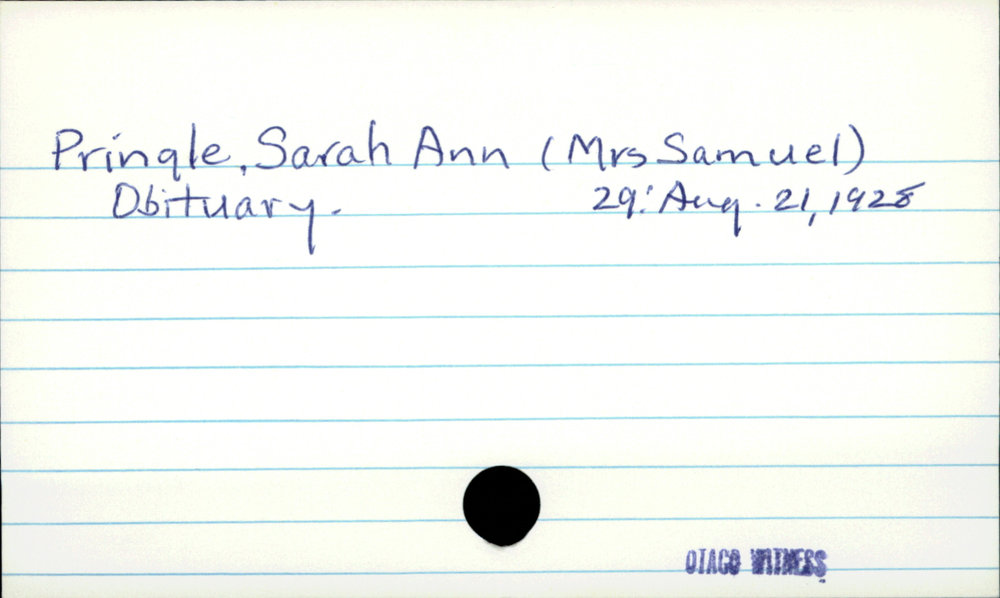 Pringle, Sarah Ann (Mrs Samuel)
Obituary. 29: Aug. 21, 1928
OTAGO WITNESS